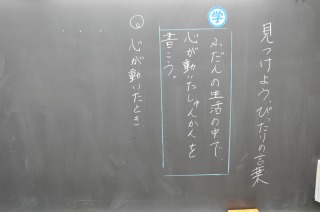 見つけよう、ぴったりの言葉
学
ふだんの生活の中で、
心が動いたしゅんかんを
書こう。
心が動いたとき